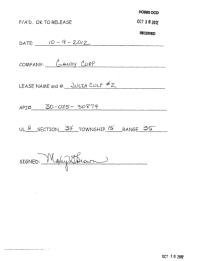 HOBBS OCD
P/A'D. OK TO RELEASE
OCT 1 0 2012
RECEIVED
DATE: 10-9-2012
COMPANY: Gandy Corp
LEASE NAME and # Julia Culp #2
API# 30-025-30879
UL H SECTION 34 TOWNSHIP 15 RANGE 35
SIGNED:
OCT 1 0 2012